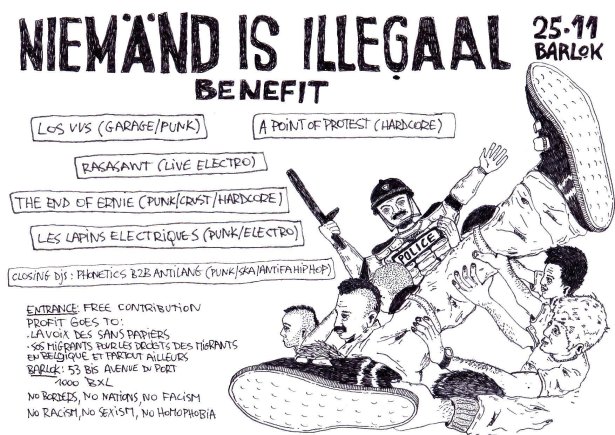 NIEMÄND IS ILLEGAAL
BENEFIT
25.11
BARLOK
LOS VVS (GARAGE/PUNK)
A POINT OF PROTEST (HARDCORE)
RASASANT (LIVE ELECTRO)
THE END OF ERNIE (PUNK/CRUST/HARDCORE)
LES LAPINS ELECTRIQUES (PUNK/ELECTRO)
CLOSING DJS: PHONETICS B2B ANTILANG (PUNK/SKA/ANTIFAHIPHOP)
POLICE
ENTRANCE: FREE CONTRIBUTION
PROFIT GOES TO:
-LA VOIX DES SANS PAPIERS
-SOS MIGRANTS POUR LES DROITS DES MIGRANTS
EN BELGIQUE ET PARTOUT AILLEURS
BARLOK: 53 BIS AVENUE DU PORT
1000 BXL
NO BORDERS, NO NATIONS, NO FACISM
NO RACISM, NO SEXISM, NO HOMOPHOBIA